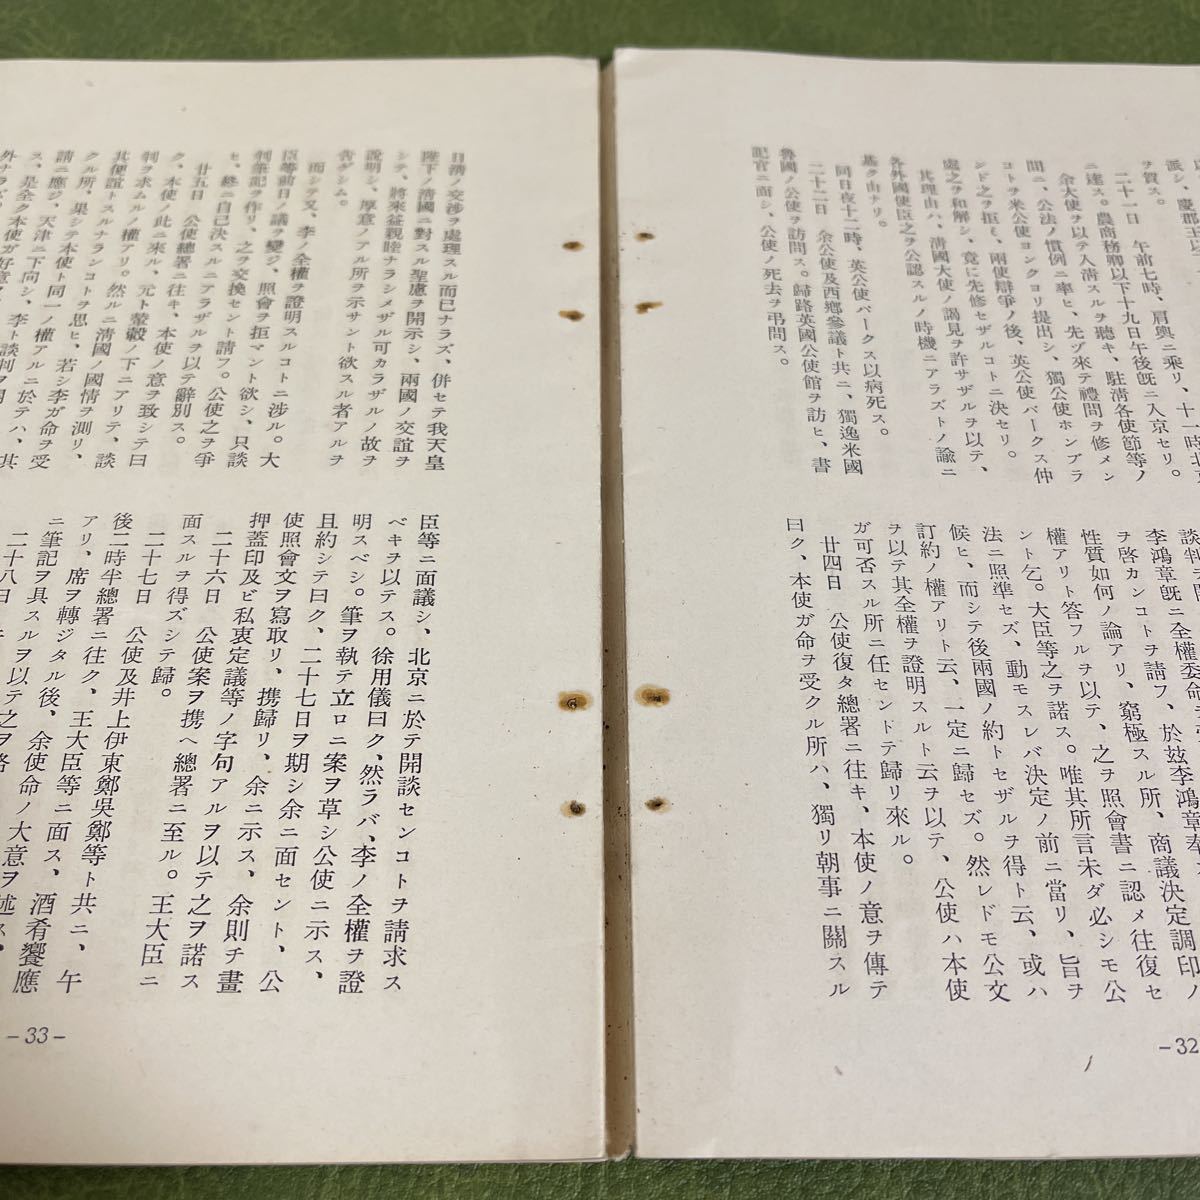 派シ、慶郡王以
ヲ賀ス。
二十一日　午前七時、肩輿ニ乘リ、十一時北京
ニ達ス。農商務卿以下十九日午後既ニ入京セリ。
余大使ヲ以テ入淸スルヲ聽キ、駐淸各使節等ノ
間ニ、公法ノ慣例ニ率ヒ、先ヅ來テ禮問ヲ修メン
コトヲ米公使ヨンクヨリ提出シ、獨公使ホンブラ
ンド之ヲ拒ミ、兩使辯爭ノ後、英公使パークス仲
處之ヲ和解シ、竟ニ先修セザルコトニ決セリ。
其理由ハ、淸國大使ノ謁見ヲ許サザルヲ以テ、
外外國使臣之ヲ公認スルノ時機ニアラズトノ論ニ
基ク由ナリ。
同日夜十二時、英公使パークス以病死ス。
二十二日　余公使及西鄕參議ト共ニ、獨逸米國
魯國ノ公使ヲ訪問ス。歸路英國公使館ヲ訪ヒ、書
記官ニ面シ、公使ノ死去ヲ弔問ス。
李鴻章旣ニ全權委命ヲ
ヲ啓カンコトヲ請フ、於玆李鴻章奉
性質如何ノ論アリ、窮極スル所、商議決定調印ノ
權アリト答フルヲ以テ、之ヲ照會書ニ認メ往復セ
ント乞。大臣等之ヲ諾ス。唯其所言未ダ必シモ公
法ニ照準セズ、動モスレバ決定ノ前ニ當リ、旨ヲ
候ヒ、而シテ後兩國ノ約トセザルヲ得ト云、或ハ
訂約ノ權アリト云、一定ニ歸セズ。然レドモ公文
ヲ以テ其全權ヲ證明スルト云ヲ以テ、公使ハ本使
ガ可否スル所ニ任セントテ歸リ來ル。
廿四日　公使復タ總署ニ往キ、本使ノ意ヲ傳テ
曰ク、本使ガ命ヲ受クル所ハ、獨リ朝事ニ關スル
-32
日淸ノ交涉ヲ處理スル而已ナラズ、併セテ我天皇
陛下ノ淸國ニ對スル聖慮ヲ開示シ、兩國ノ交誼ヲ
シテ、將來益親睦ナラシメザル可カラザルノ故ヲ
說明シ、厚意ノアル所ヲ示サント欲スル者アルヲ
告ゲシム。
而シテ又、李ノ全權ヲ證明スルコトニ涉ル。大
臣等前日ノ議ヲ變ジ、照會ヲ拒マント欲シ、只談
判筆記ヲ作リ、之ヲ交換セント請フ。公使之ヲ爭
ヒ、終ニ自己決スルニアラザルヲ以テ辭別ス。
廿五日　公使總署ニ往キ、本使ノ意ヲ致シテ曰
ク、本使ノ此ニ來ル、元ト輦轂ノ下ニアリテ、談
判ヲ求ムルノ權アリ。然ルニ淸國ノ國情ヲ測リ、
其便誼トスルナランコトヲ思ヒ、若シ李ガ命ヲ受
クル所、果シテ本使ト同一ノ權アルニ於テハ、其
請ニ應ジ、天津ニ下向シ、李ト談判ヲ
ス、是全ク本使ガ好意
外ナラズ
臣等ニ面議シ、北京ニ於テ開談センコトヲ請求ス
ベキヲ以テス。徐用儀曰ク、然ラバ、李ノ全權ヲ證
明スベシ。筆ヲ執テ立ロニ案ヲ草シ公使ニ示ス、
且約シテ曰ク、二十七日ヲ期シ余ニ面セント、公
使照會文ヲ寫取リ、携歸リ、余ニ示ス、余則チ畫
押蓋印及ビ私衷定議等ノ字句アルヲ以テ之ヲ諾ス
二十六日　公使案ヲ携ヘ總署ニ至ル。王大臣ニ
面スルヲ得ズシテ歸。
二十七日　公使及井上伊東鄭吳鄭等ト共ニ、午
後二時半總署ニ往ク、王大臣等ニ面ス、酒肴饗應
アリ、席ヲ轉ジタル後、余使命ノ大意ヲ述ス、
ニ筆記ヲ具スルヲ以テ之ヲ
二十八日
-33-